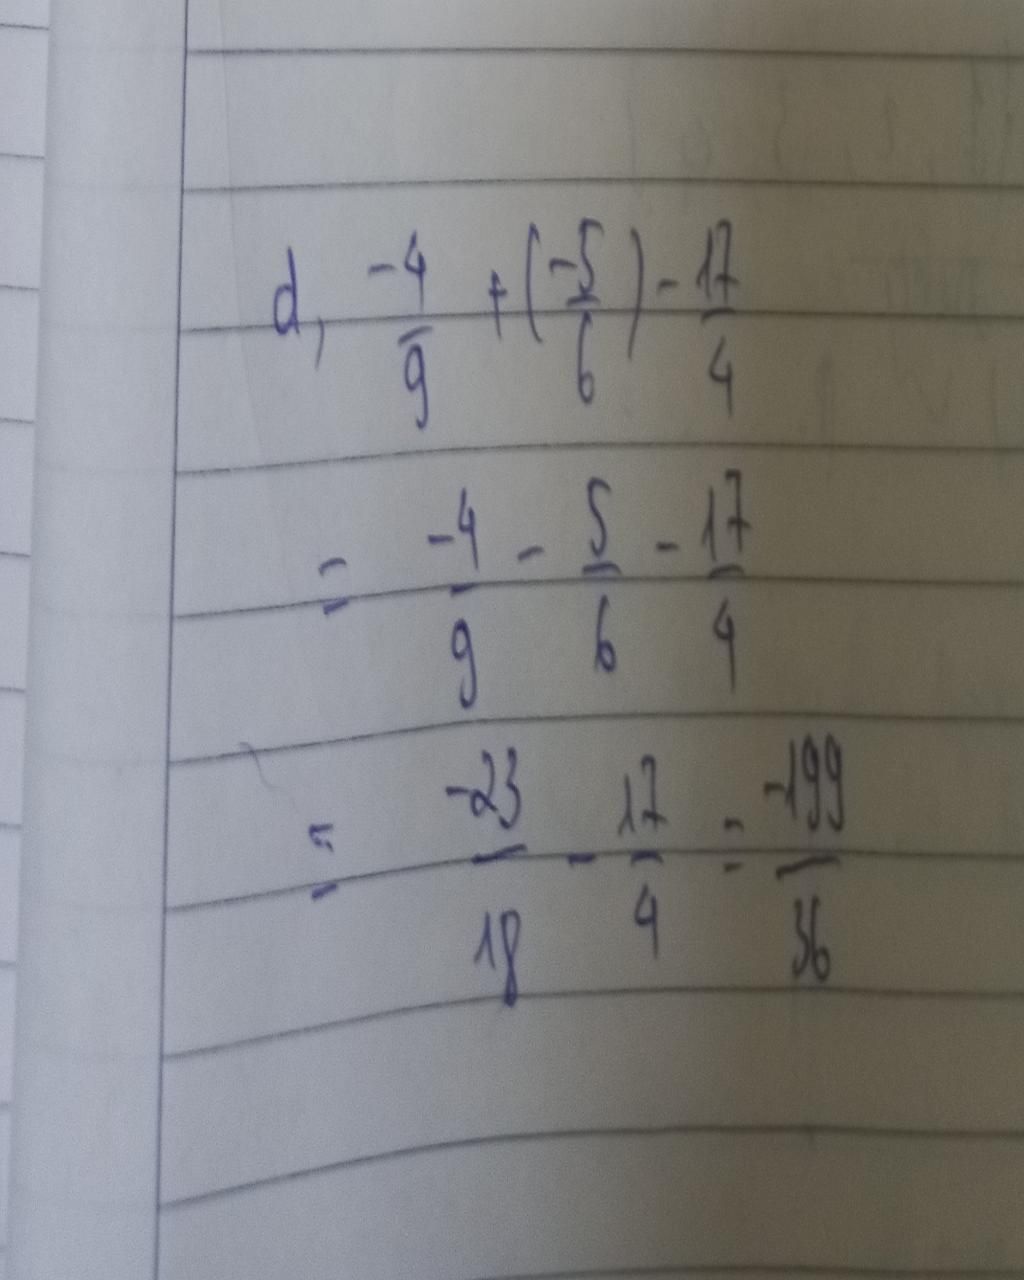 d, -4/9 + (-5/6) - 17/4
= -4/9 - 5/6 - 17/4
= -23/18 - 17/4 = -199/36